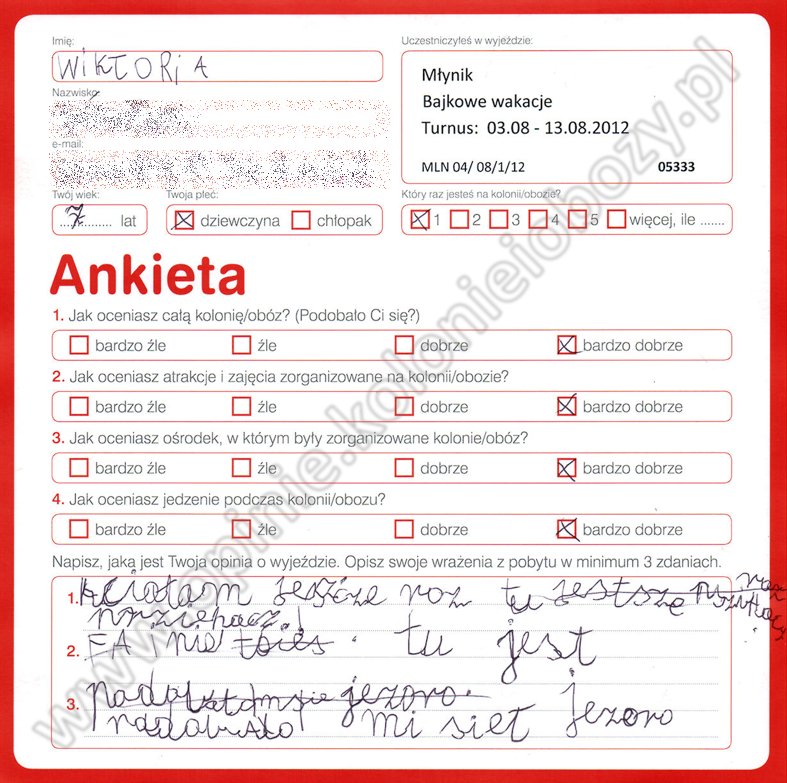 Imię:
WiKTORiA
Uczestniczyłeś w wyjeździe:
Młynik
Bajkowe wakacje
Turnus: 03.08 - 13.08.2012
MLN 04/ 08/1/12 05333
Nazwisko:
e-mail:
Twój wiek:
7 lat
Twoja płeć:
dziewczyna chłopak
Który raz jesteś na kolonii/obozie?
1 2 3 4 5 więcej, ile .......
Ankieta
1. Jak oceniasz całą kolonię/obóz? (Podobało Ci się?)
bardzo źle źle dobrze bardzo dobrze
2. Jak oceniasz atrakcje i zajęcia zorganizowane na kolonii/obozie?
bardzo źle źle dobrze bardzo dobrze
3. Jak oceniasz ośrodek, w którym były zorganizowane kolonie/obóz?
bardzo źle źle dobrze bardzo dobrze
4. Jak oceniasz jedzenie podczas kolonii/obozu?
bardzo źle źle dobrze bardzo dobrze
Napisz, jaką jest Twoja opinia o wyjeździe. Opisz swoje wrażenia z pobytu w minimum 3 zdaniach.
1. jeszcze roz tu
2. FAjnie tu jest
3. jezoro
mi siet jezoro
www.opinie.kolonieiobozy.pl